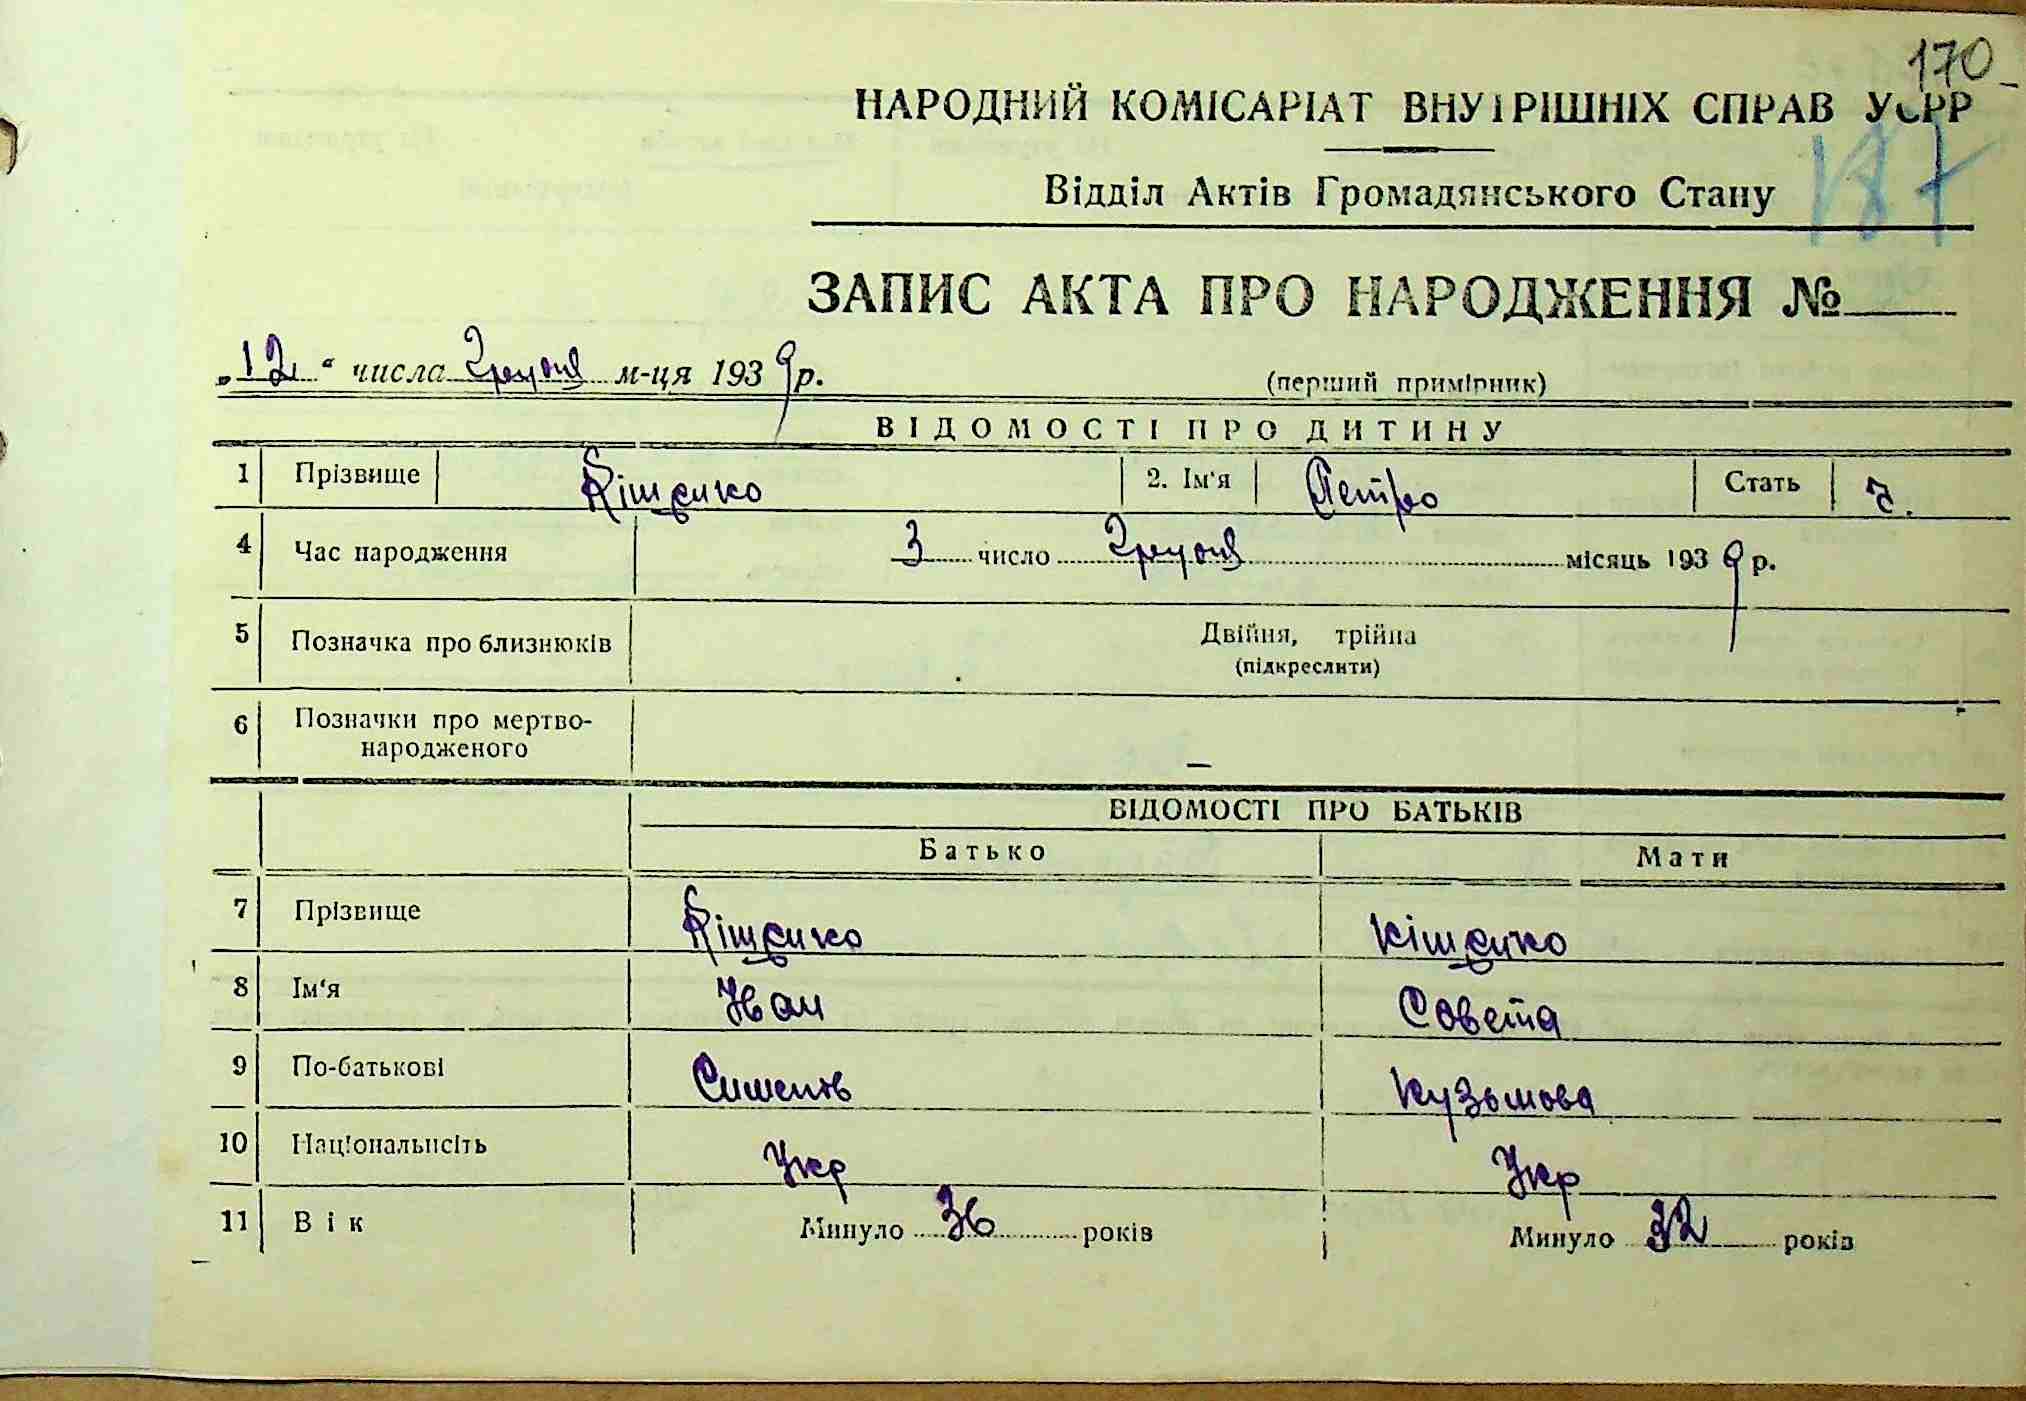 170
НАРОДНИЙ КОМІСАРІАТ ВНУТРІШНІХ СПРАВ УСРР
187
Відділ Актів Громадянського Стану
ЗАПИС АКТА ПРО НАРОДЖЕННЯ №
„12“ числа Грудня м-ця 1939 р. (перший примірник)
ВІДОМОСТІ ПРО ДИТИНУ
1 Прізвище Кіщенко 2. Ім'я Петро Стать ч.
4 Час народження 3 число Грудня місяць 1939 р.
5 Позначка про близнюків Двійня, трійна
(підкреслити)
6 Позначки про мертво-
народженого —
ВІДОМОСТІ ПРО БАТЬКІВ
Батько Мати
7 Прізвище Кіщенко Кіщенко
8 Ім'я Іван Совета
9 По-батькові Кузьмова
10 Національність Укр Укр
11 Вік Минуло 36 років Минуло 32 років